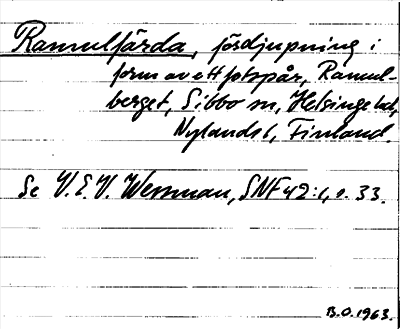 Ramulfärda, fördjupning i
form av ett fotspår, Ramul-
berget, Sibbo sn, Helsinge hd,
Nylands l, Finland.
Se V.E.V. Wessman, SNF 42:1, s. 33.
B.O. 1963.